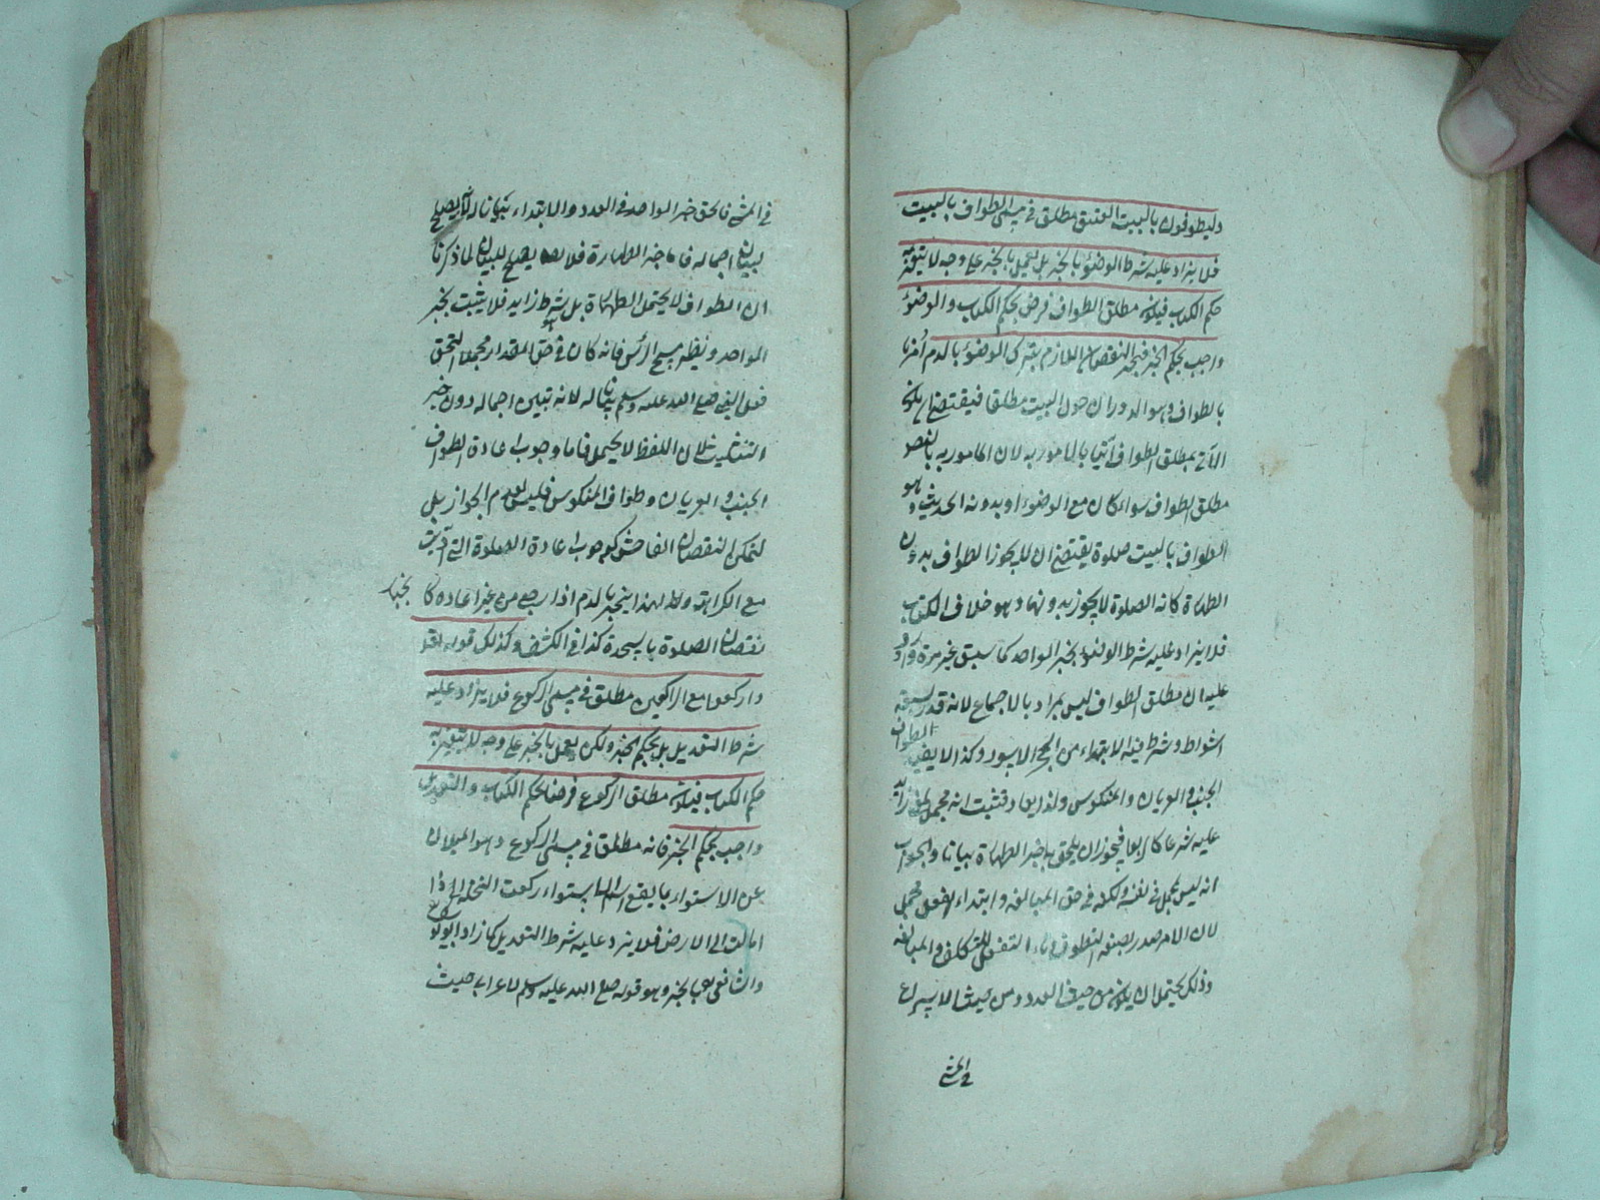 وليطوفوا بالبيت العتيق مطلق في مسمى الطواف بالبيت
فلا يزاد عليه شرط الوضوء بالخبر بل يعمل بالخبر على وجه لا يتغير به
حكم الكتاب فيكون مطلق الطواف فرض بحكم الكتاب والوضوء
واجب بحكم الخبر فيجبر النقصان اللازم بترك الوضوء بالدم أمرنا
بالطواف وهو الدوران حول البيت مطلقا فيقتضي ان يكون
الآتي بمطلق الطواف آتيا بالمامور به لان المامور به بالنص
مطلق الطواف سواء كان مع الوضوء او بدونه الحديث وهو
الطواف بالبيت صلوة يقتضي ان لا يجوز الطواف بدون
الطهارة كانه الصلوة لا يجوز بدونها وهو خلاف الكتاب
فلا يزاد عليه شرط الوضوء بخبر الواحد كما سبق غير مرة
عليه ان مطلق الطواف ليس بمراد بالاجماع لانه قدر بسبعة
اشواط وشرط فيه الابتداء من الحجر الاسود وكذا لا يفيد الطواف
الجنب والعريان والمنكوس ولذا يعاد فثبت انه مجمل
عليه شرعا كالربوا فيجوز ان يلحق به خبر الطهارة بيانا والجواب
انه ليس بمجمل في نفسه ولكنه في حق المبالغة وابتداء الفعل مجمل
لان الامر صدر بصيغة التطوف وباب التفعل للتكلف والمبالغة
وذلك يحتمل ان يكون من حيث العدد ومن حيث الاسراع
في المشي
في المشي فالحق خبر الواحد في العدد والابتداء بيانا له لانه يصلح
لبيان اجماله فاما خبر الطهارة فلا يصلح للبيان لما ذكرنا
ان الطواف لا يحتمل الطهارة بل شرط زايد فلا يثبت بخبر
الواحد ونظيره مسح الرأس فانه كان في حق المقدار مجملا التحق
فعل النبي صلى الله عليه وسلم بيانا له لانه تبين اجماله دون خبر
التثليث لان اللفظ لا يحتمل فاما وجوب اعادة الطواف
الجنب والعريان وطواف المنكوس فليس لعدم الجواز بل
لتمكن النقصان الفاحش كوجوب اعادة الصلوة التي اديت
مع الكراهة ولهذا ينجبر بالدم اذا رجع من غير اعادة كما ينجبر
نقصان الصلوة بالسجدة كذا في الكشف وكذلك قوله تعالى
واركعوا مع الراكعين مطلق في مسمى الركوع فلا يزاد عليه
شرط التعديل بل بحكم الخبر ولكن يعمل بالخبر على وجه لا يتغير به
حكم الكتاب فيكون مطلق الركوع فرضا بحكم الكتاب والتعديل
واجب بحكم الخبر فانه مطلق في مسمى الركوع وهو الميلان
عن الاستواء بما يقع اسم الاستواء ركعت النخلة اذا
امالت الى الارض فلا يزد عليه شرط التعديل كما زاد ابو يوسف
والشافعي بالخبر وهو قوله صلى الله عليه وسلم لاعرابي حيث